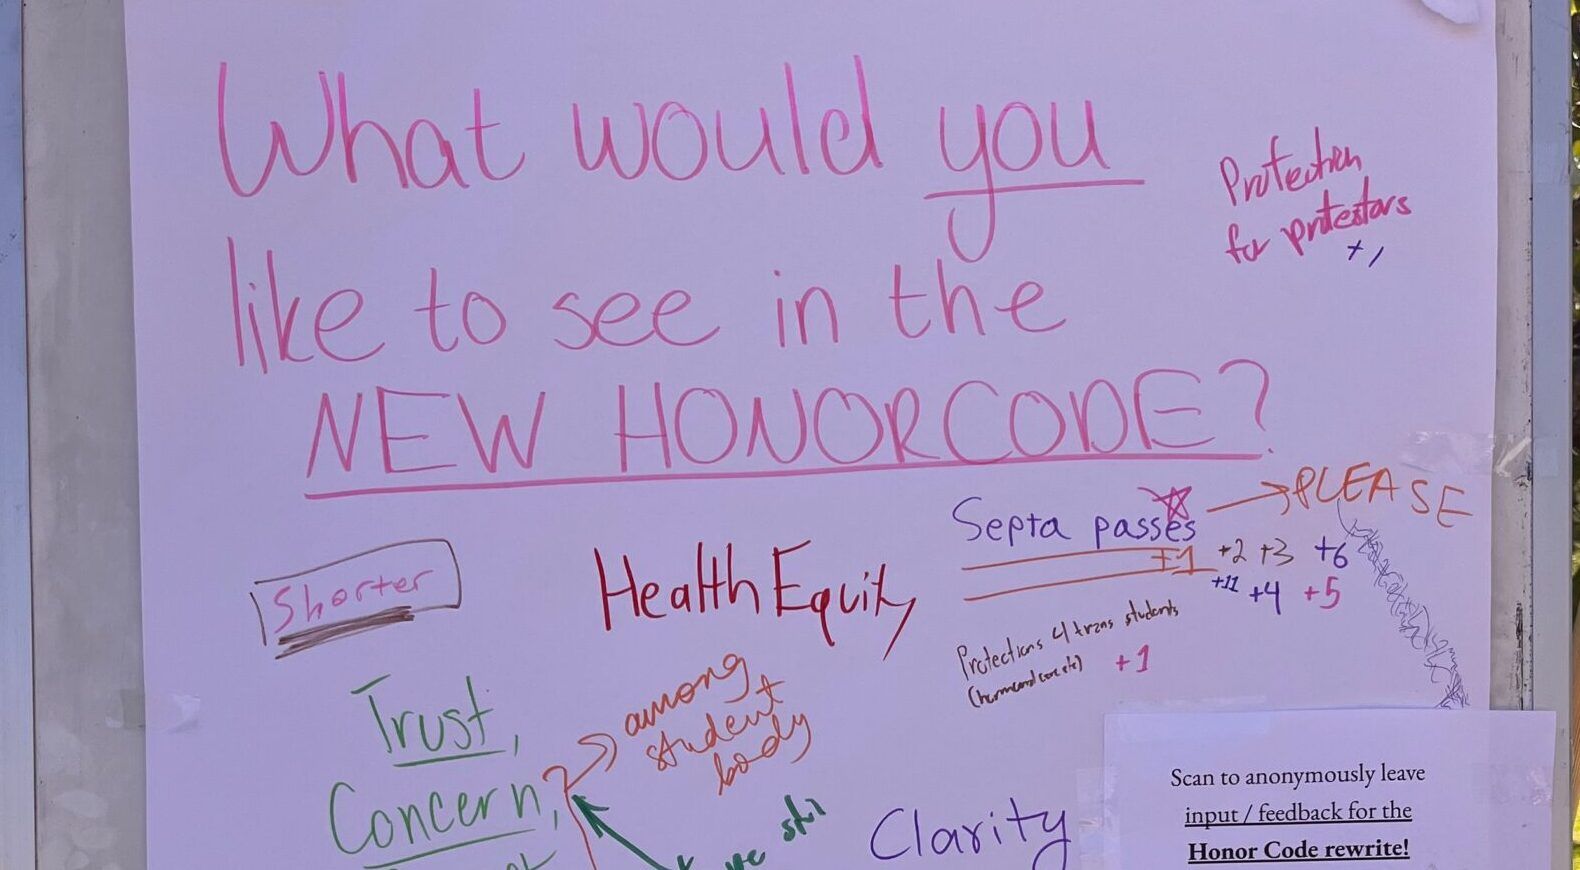 What would you
like to see in the
NEW HONOR CODE?
Protection
for protestors
+1
Septa passes
PLEASE
+1 +2 +3 +6
+11 +4 +5
Shorter
Health Equity
Protections 4 trans students
+1
Trust,
Concern,
among
student
body
Clarity
Scan to anonymously leave
input / feedback for the
Honor Code rewrite!